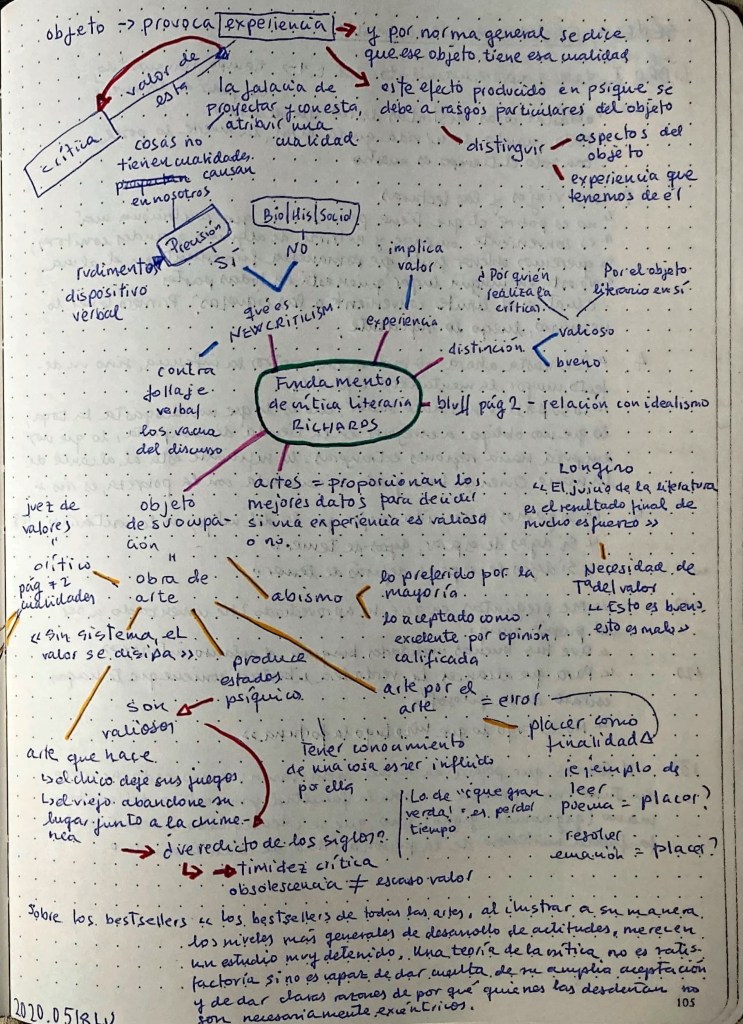 objeto → provoca experiencia → y por norma general se dice
que ese objeto tiene esa cualidad
valor de
esta
crítica
la falacia de
proyectar y con esta,
atribuir una
cualidad
este efecto producido en psique se
debe a rasgos particulares del objeto
distinguir
aspectos del
objeto
experiencia que
tenemos de él
cosas no
tienen cualidades.
causan
en nosotros
Precisión
Bio/His/Sociol
SÍ
NO
rudimento
dispositivo
verbal
qué es
NEWCRITICISM
implica
valor
experiencia
¿Por quién
realiza la
crítica?
Por el objeto
literario en sí
distinción
valioso
bueno
contra
follaje
verbal
los
del discurso
Fundamentos
de crítica literaria
RICHARDS
bluff pág 2 - relación con idealismo
artes = proporcionan los
mejores datos para decidir
si una experiencia es valiosa
o no.
Longino
"El juicio de la literatura
es el resultado final de
mucho esfuerzo"
Necesidad de
Tª del valor
"Esto es bueno,
esto es malo"
juez de
valores
"
crítico
pág 72
cualidades
objeto
de su ocupa-
ción
"
obra de
arte
abismo
lo preferido por la
mayoría.
lo aceptado como
excelente por opinión
calificada
"Sin sistema, el
valor se disipa"
produce
estados
psíquico.
son
valiosos
arte por el
arte
= error
placer como
finalidad
arte que hace
↳ el chico deje sus juegos.
↳ el viejo abandone su
lugar junto a la chime-
nea
Tener conocimiento
de una cosa es ser influido
por ella
Lo de "¡que gran
verdad!" es perder
tiempo
ejemplo de
leer
poema = placer?
resolver
ecuación = placer?
→ ¿veredicto de los siglos?
↳ → timidez crítica
obsolescencia ≠ escaso valor
Sobre los bestsellers "los bestsellers de todas las artes, al ilustrar a su manera
los niveles más generales de desarrollo de actitudes, merecen
un estudio muy detenido. Una teoría de la crítica no es satis-
factoria si no es capaz de dar cuenta de su amplia aceptación
y de dar claras razones de por qué quienes las desdeñan no
son necesariamente excéntricos.
105